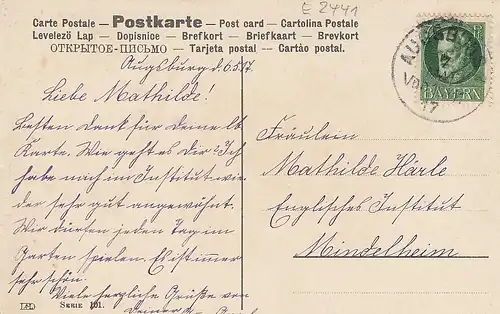 E 2441
Carte Postale – Postkarte – Post card – Cartolina Postale
Levelezö Lap – Dopisnice – Brefkort – Briefkaart – Brevkort
ОТКРЫТОЕ-ПИСЬМО – Tarjeta postal – Cartão postal.
BAYERN
Augsburg d. 6.5.17.
Liebe Mathilde!
Besten Dank für deine lb
Karte. Wie geht es dir? Ich
habe mich im Institut wie-
der sehr gut angewöhnt.
Wir dürfen jeden Tag im
Garten spielen. Es ist immer
sehr schön.
Viele herzliche Grüße von
deiner
Fräulein
Mathilde Härle
Englisches Institut
Mindelheim
SERIE 101.